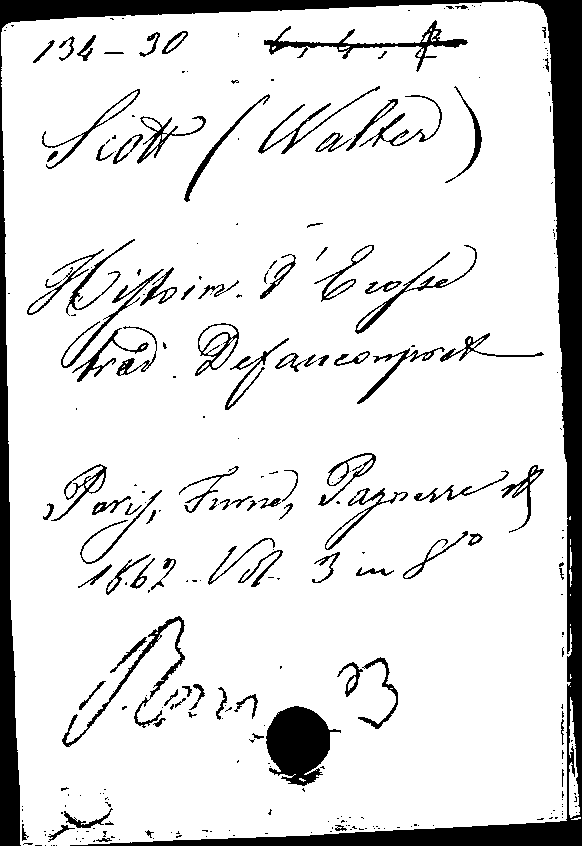 134-30
Scott (Walter)
Histoire d'Ecosse
trad. Defauconpret
Paris, Furne, Pagnerre et
1862. Vol. 3 in 8º